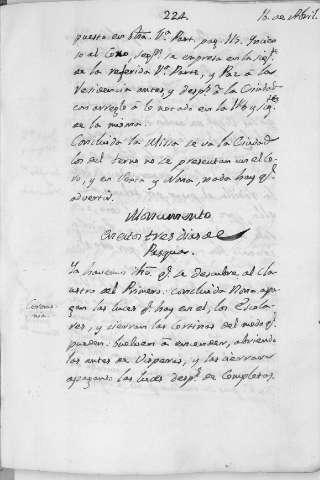 224. 16. de Abril.
puesto en dha. Vª. Part. pag. 113. Incien
so al Coro, segⁿ. se empresa en la sigᵗᵉ.
de la referida Vª. Parte, y Paz à las
Residencia antes, y despˢ. à la Ciudad
con arreglo à lo notado en la
de la misma.
Concluida la Missa se va la Ciudad
los del terno no se presentan en el Co-
ro, y en Sexta y Nona, nada hay qᵉ.
advertir.
Monumento
en estos tres dias de
Pasqua.
Ya havemos dho. qᵉ. se descubre al Cla-
ustro del Primero: concluida Nona apa-
Ceremo-
nia.
gan las luces qᵉ. hay en el, los Escola-
res, y cierran las Cortinas del modo qᵉ.
pueden: buelven à encender, abriendo
las antes de Visperas, y las cierran
apagando las luces despˢ. de Completas.